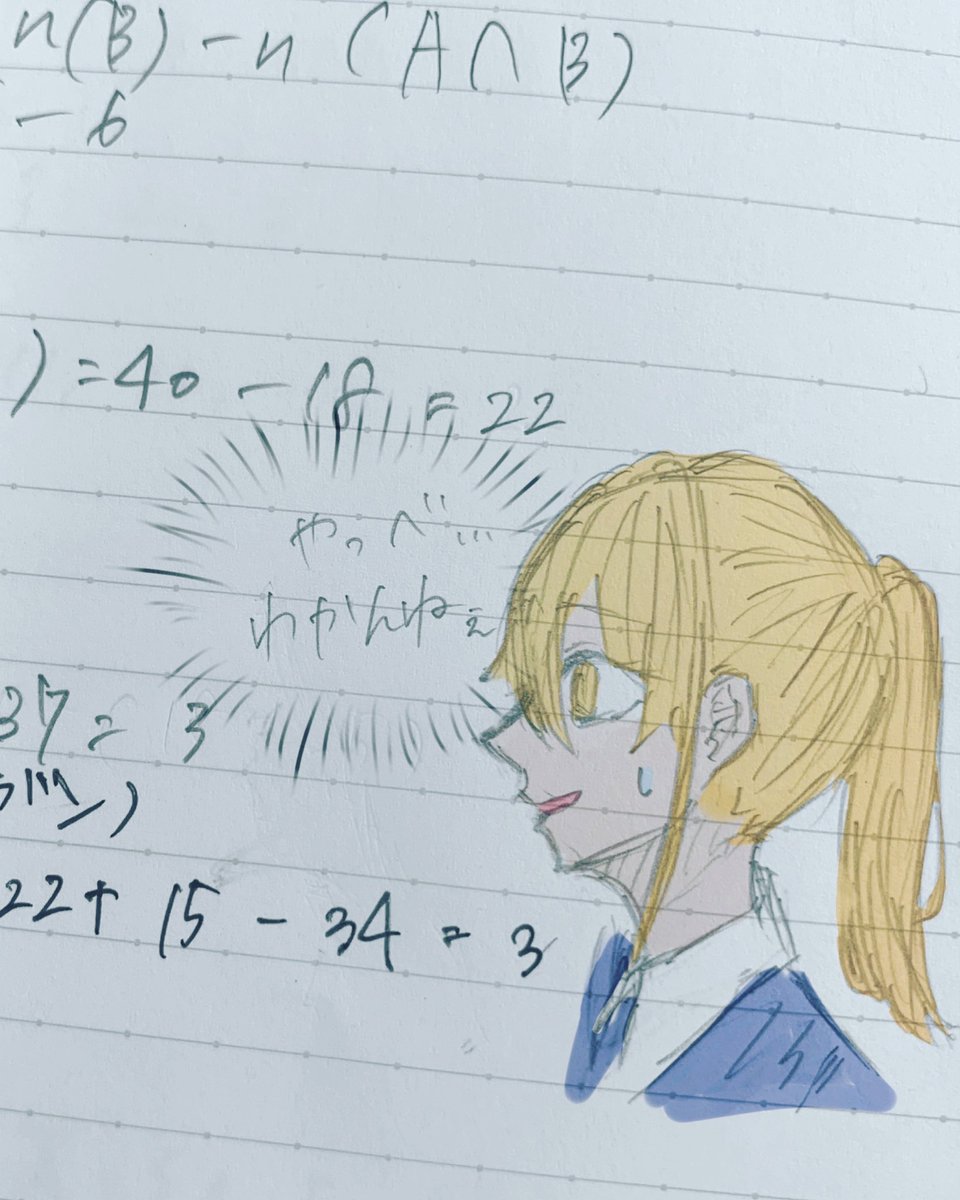 n(B) - n (A∩B)
- 6
) = 40 - 18 = 22
やっべ…
わかんねぇ
37 = 3
22 + 15 - 34 = 3